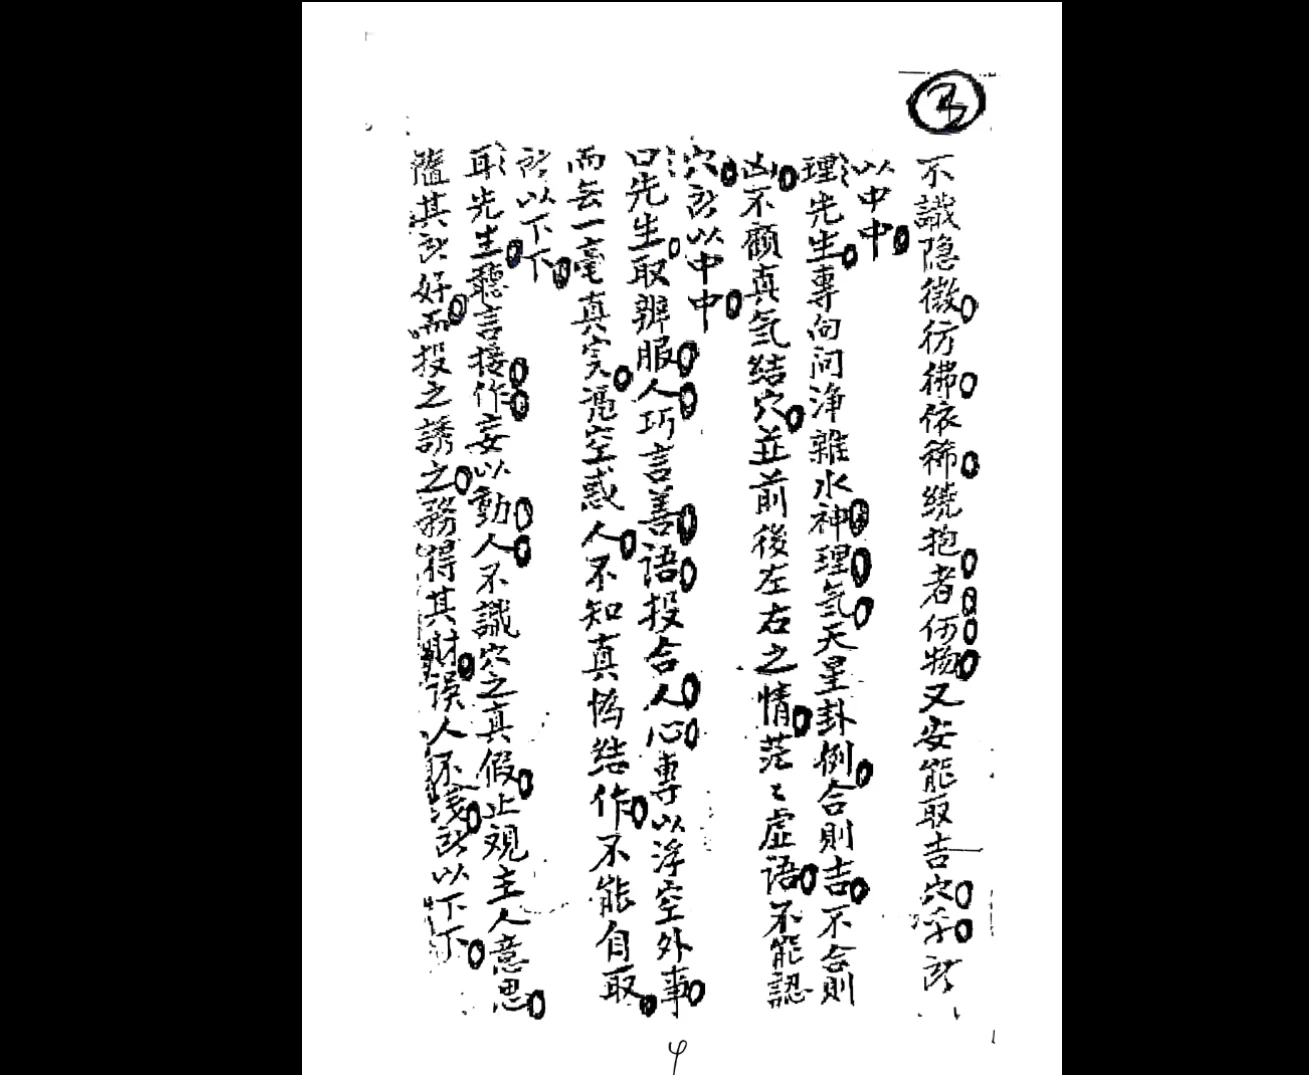 不識隐微彷彿依稀繞抱者何物又安能取吉穴乎所
以中中
理先生專向问浄雜水神理氣天星卦例合則吉不合則
凶不顧真气结穴並前後左右之情茫〻虛语不能認
穴所以中中
口先生取辨服人巧言善语投合人心專以浮空外事
而去一毫真实凭空惑人不知真偽结作不能自取
所以下下
耳先生聽言接作妄以動人不識穴之真假止观主人意思
隨其所好而投之誘之務得其財误人不浅所以下下
4